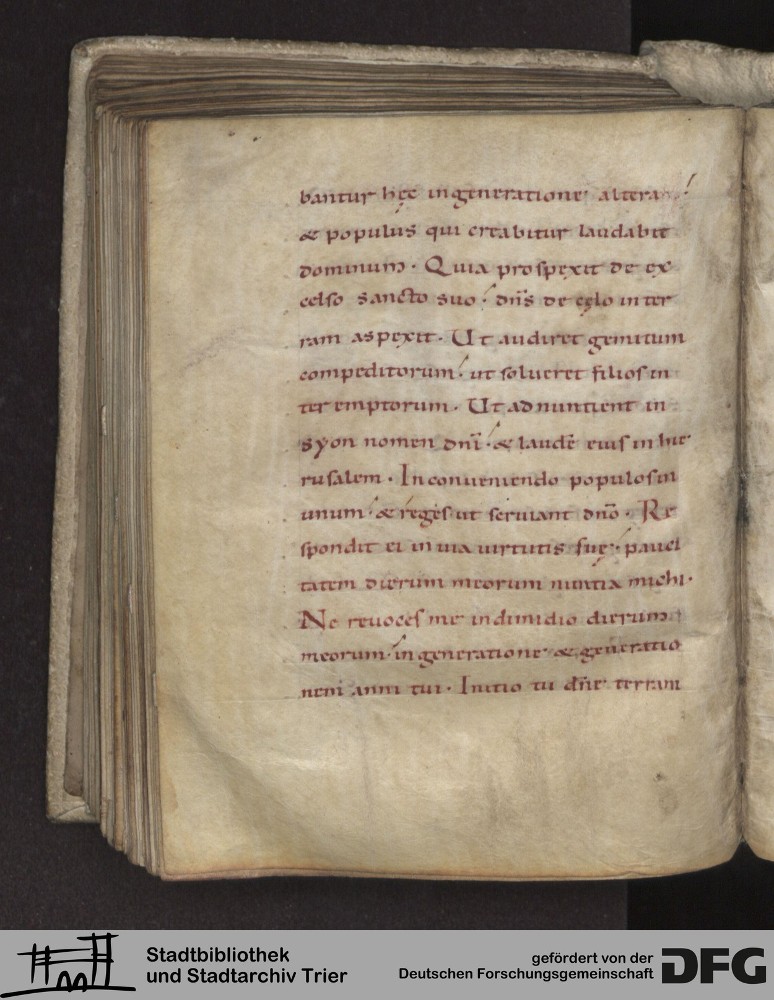 bantur hęc ingeneratione altera
& populus qui creabitur laudabit
dominum. Quia prospexit de ex
celso sancto suo; dn̄s de cęlo inter
ram aspexit. Ut audiret gemitum
compeditorum; ut solueret filios in
teremptorum. Ut adnuntient in
syon nomen dn̄i; & laudē eius in hie
rusalem. Inconueniendo populos in
unum; & reges ut seruiant dn̄o. Re
spondit ei in uia uirtutis suę; pauci
tatem dierum meorum nuntia michi.
Ne reuoces me indimidio dierum
meorum; in generatione & generatio
nem anni tui. Initio tu dn̄e terram
Stadtbibliothek
und Stadtarchiv Trier
gefördert von der
Deutschen Forschungsgemeinschaft
DFG